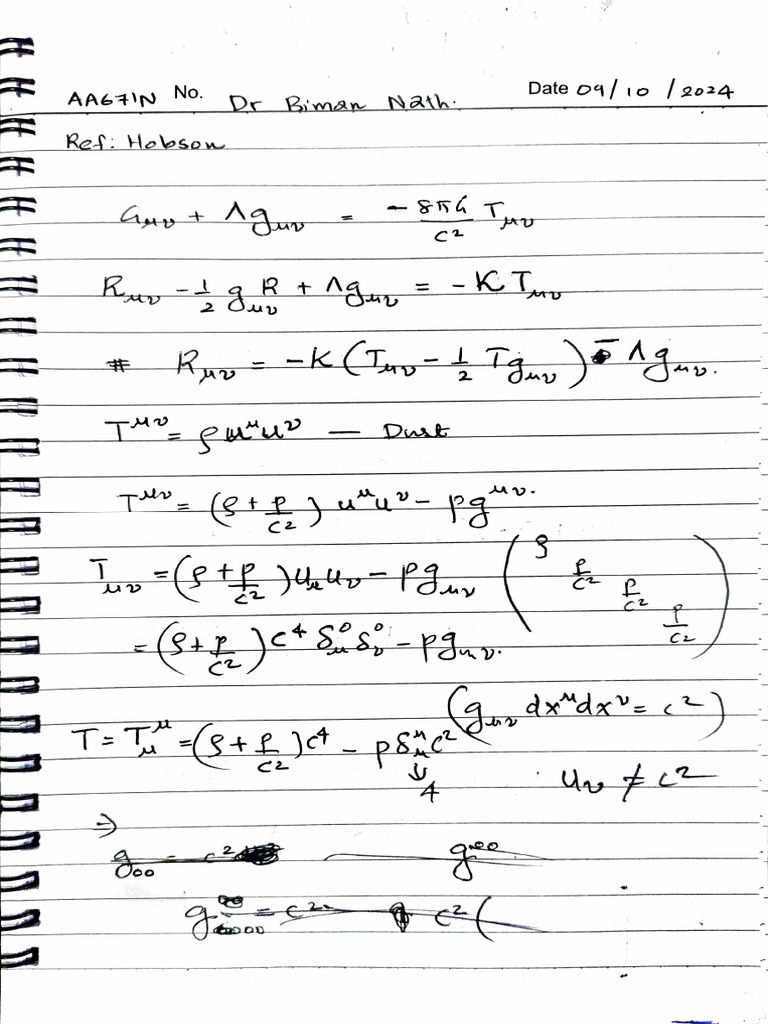 AA671N No. Dr Biman Nath. Date 09/10/2024
Ref: Hobson
Gμν + Λgμν = -8πG/c² Tμν
Rμν - 1/2 gμν R + Λgμν = -K Tμν
# Rμν = -K (Tμν - 1/2 T gμν) - Λgμν.
T^μν = ρ u^μ u^ν — Dust
T^μν = (ρ + p/c²) u^μ u^ν - p g^μν.
Tμν = (ρ + p/c²) uμ uν - p gμν ( ρ p/c² p/c² p/c² )
= (ρ + p/c²) c⁴ δ⁰μ δ⁰ν - p gμν.
(gμν dx^μ dx^ν = c²)
T = T^μ_μ = (ρ + p/c²) c⁴ - p δ^μ_μ c²
↓
4 uν ≠ c²
⇒
g₀₀ = c² g^00
g = c² c² (